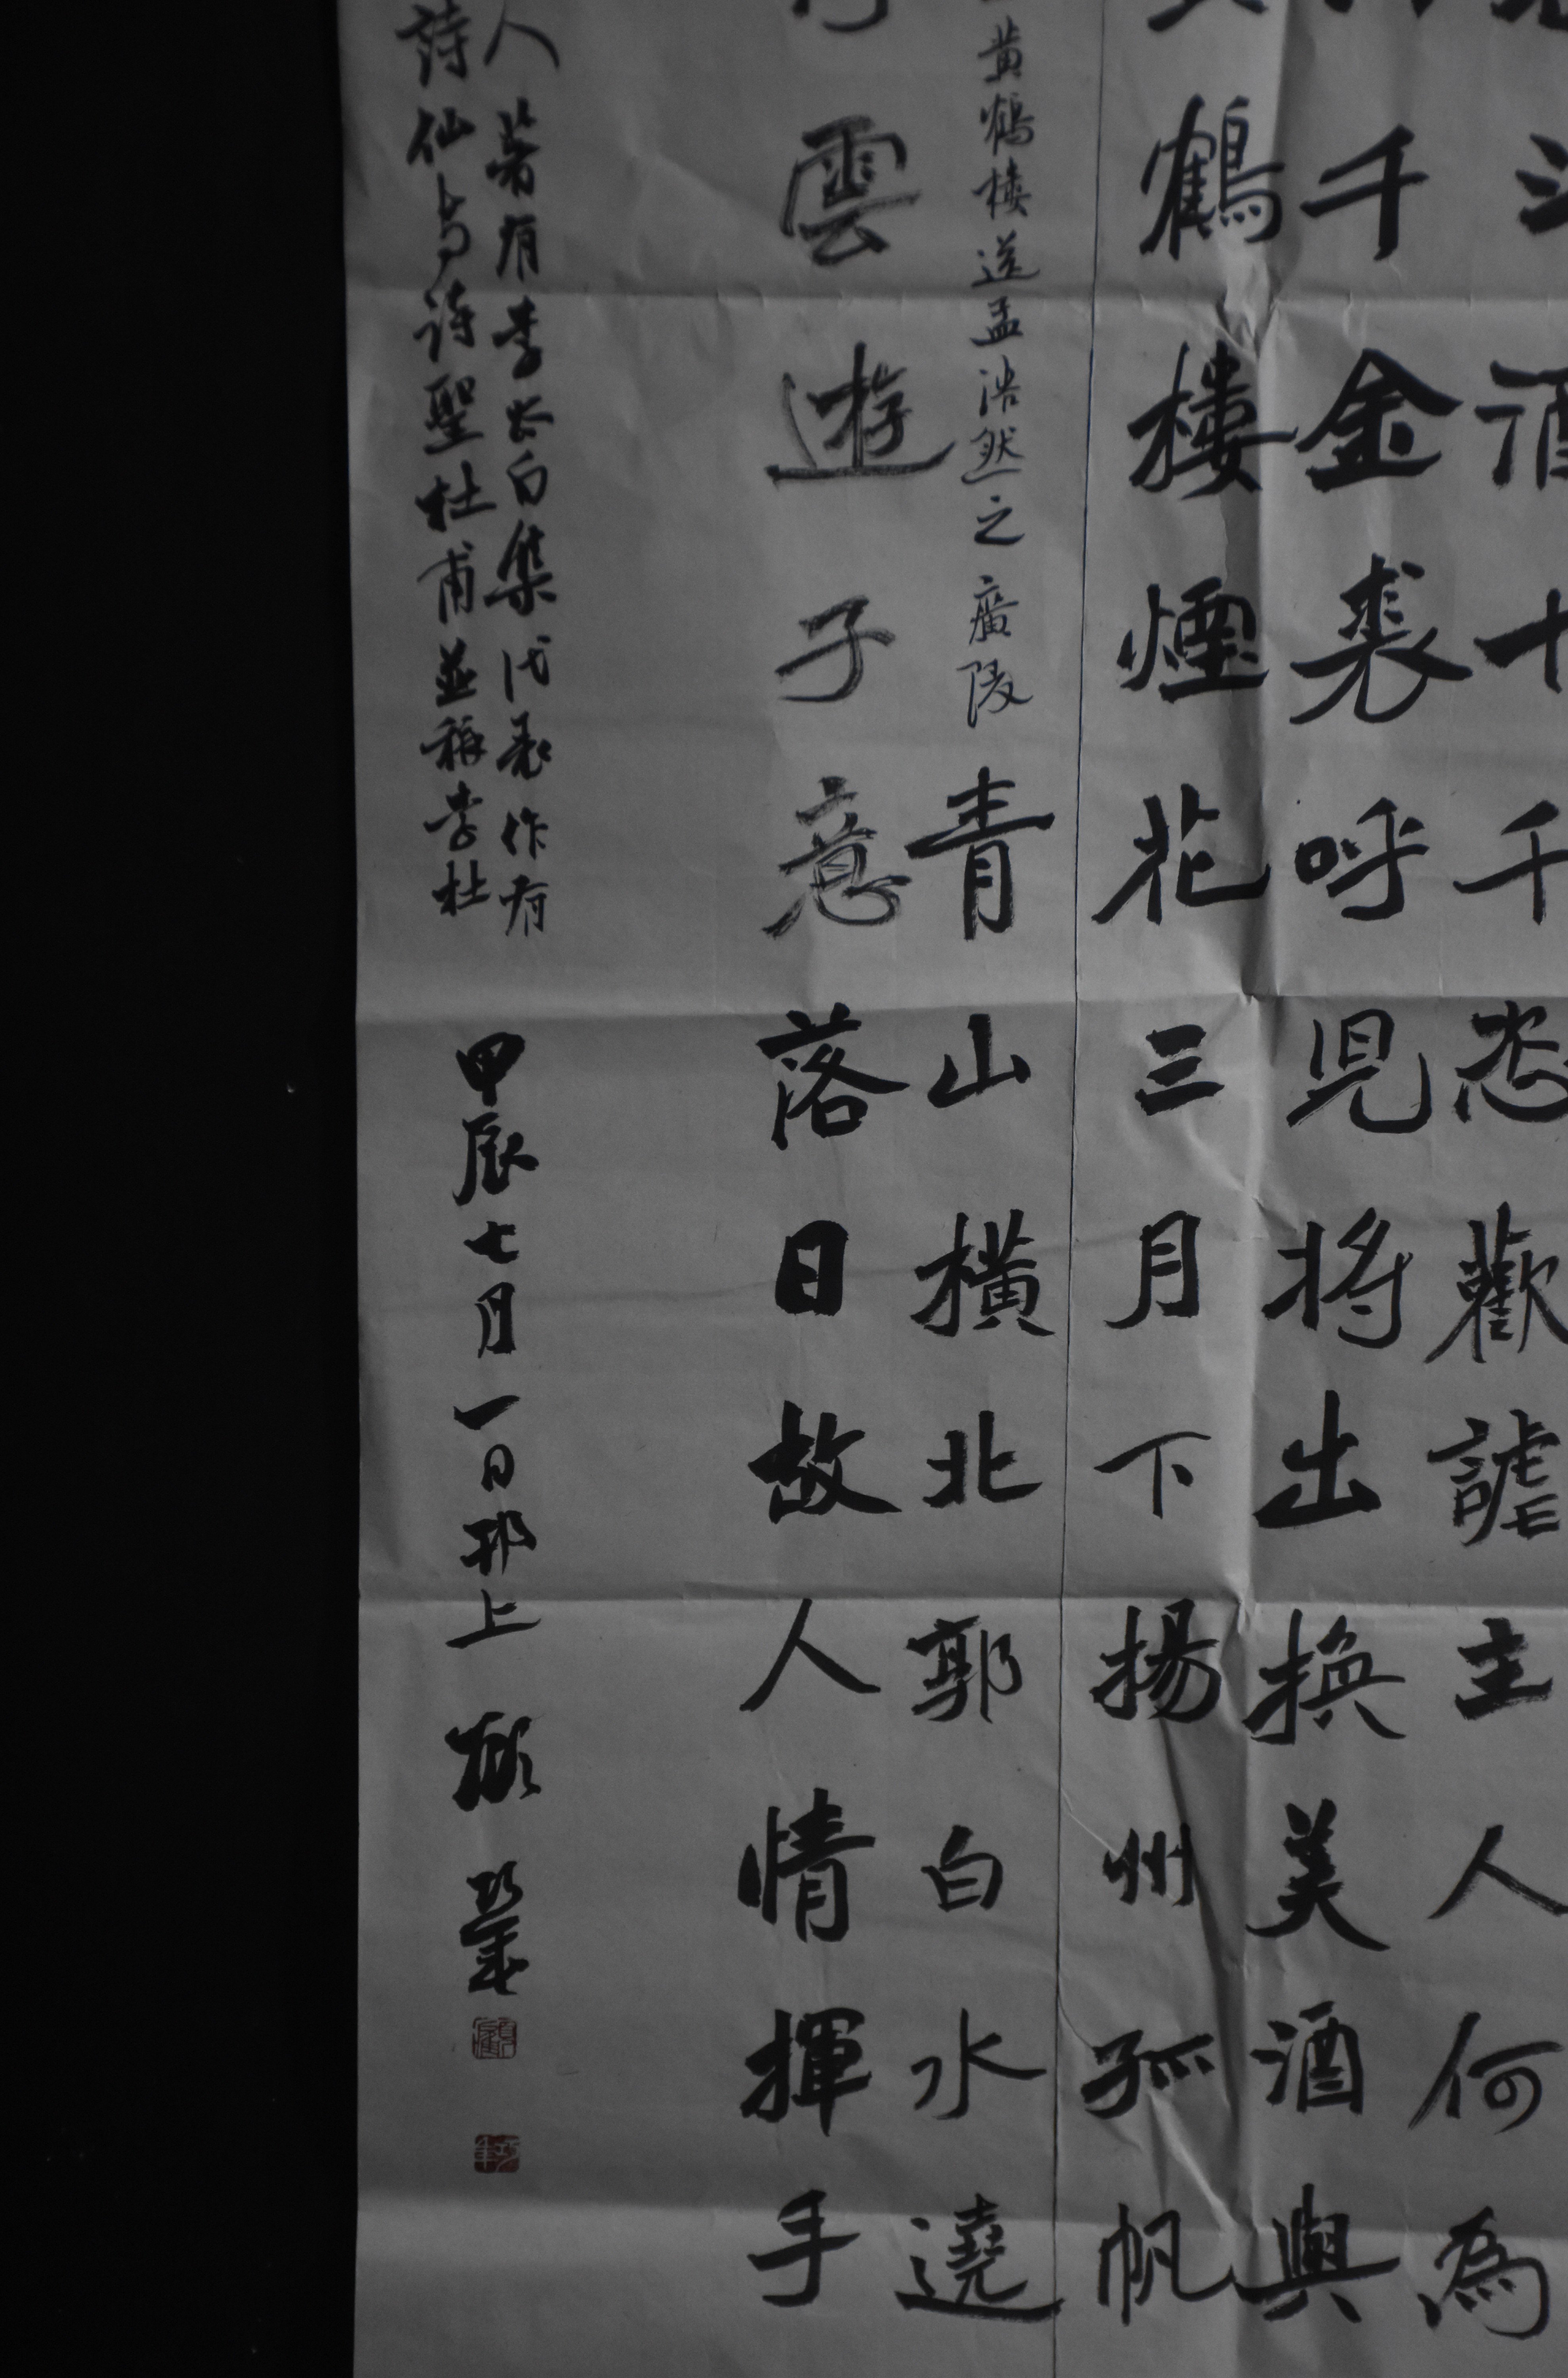 酒十千恣歡謔主人何為
千金裘呼兒將出換美酒與
鶴樓煙花三月下揚州孤帆
黃鶴樓送孟浩然之廣陵
青山橫北郭白水遶
雲遊子意落日故人情揮手
人著有李太白集代表作有
詩仙與詩聖杜甫並稱李杜
甲辰七月一日邗上顧